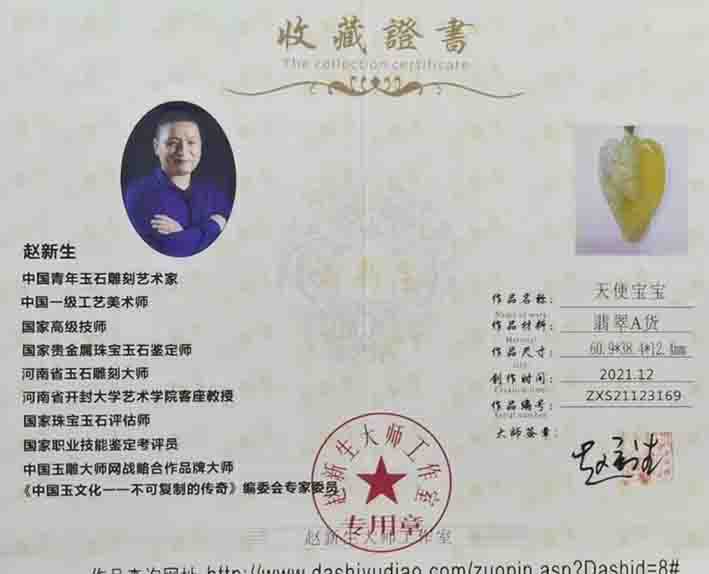 收藏證書
The collection certificate
赵新生
中国青年玉石雕刻艺术家
中国一级工艺美术师
国家高级技师
国家贵金属珠宝玉石鉴定师
河南省玉石雕刻大师
河南省开封大学艺术学院客座教授
国家珠宝玉石评估师
国家职业技能鉴定考评员
中国玉雕大师网战略合作品牌大师
《中国玉文化——不可复制的传奇》编委会专家委员
作品名称: 天使宝宝
Name of work
作品材料: 翡翠A货
Material
作品尺寸: 60.9*38.4*12.4mm
创作时间: 2021.12
作品编号: ZXS21123169
Serial number
大师签章: 赵新生
赵新生大师工作室
专用章
赵新生大师工作室
作品查询网址 http://www.dashiyudiao.com/zuopin.asp?Dashid=8#